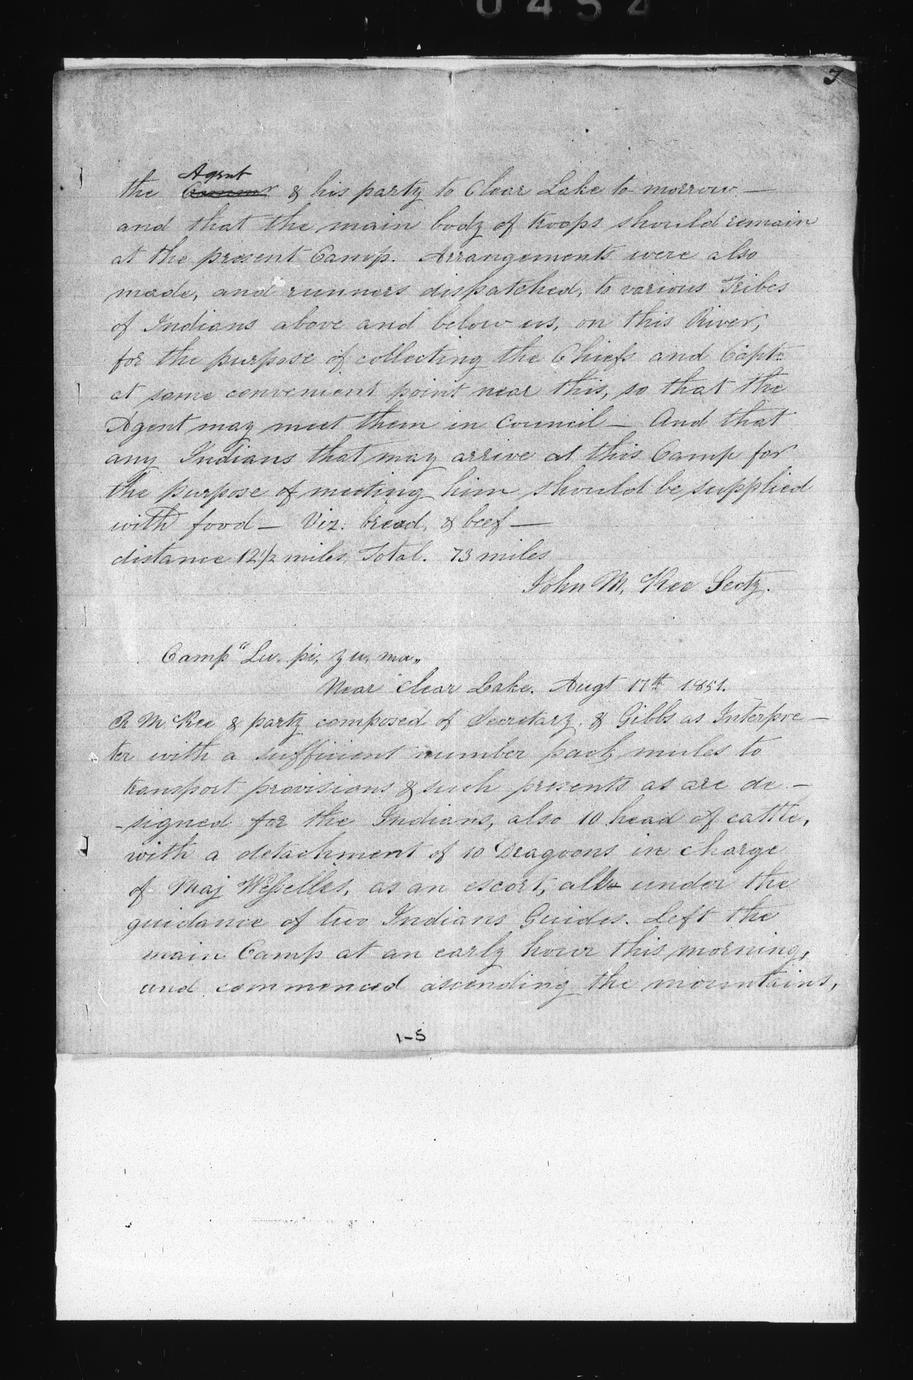 0454
the Agent Commr & his party to Clear Lake to morrow —
and that the main body of troops should remain
at the present Camp. Arrangements were also
made, and runners dispatched, to various Tribes
of Indians above and below us, on this River,
for the purpose of collecting the Chiefs and Capts
at some convenient point near this, so that the
Agent may meet them in Council — And that
any Indians that may arrive at this Camp for
the purpose of meeting him should be supplied
with food — Viz. bread, & beef —
distance 12 1/2 miles, Total. 73 miles
John McKee Secty.
Camp "Lu. pi, yu, ma"
Near Clear Lake. Augt 17th 1851.
R McKee & party composed of Secretary, & Gibbs as Interpre-
ter with a sufficient number pack mules to
transport provisions & such presents as are de -
-signed for the Indians, also 10 head of cattle,
with a detachment of 10 Dragoons in charge
of Maj Wessells, as an escort, all under the
guidance of two Indians Guides. Left the
main Camp at an early hour this morning,
and commenced ascending the mountains,
1-5